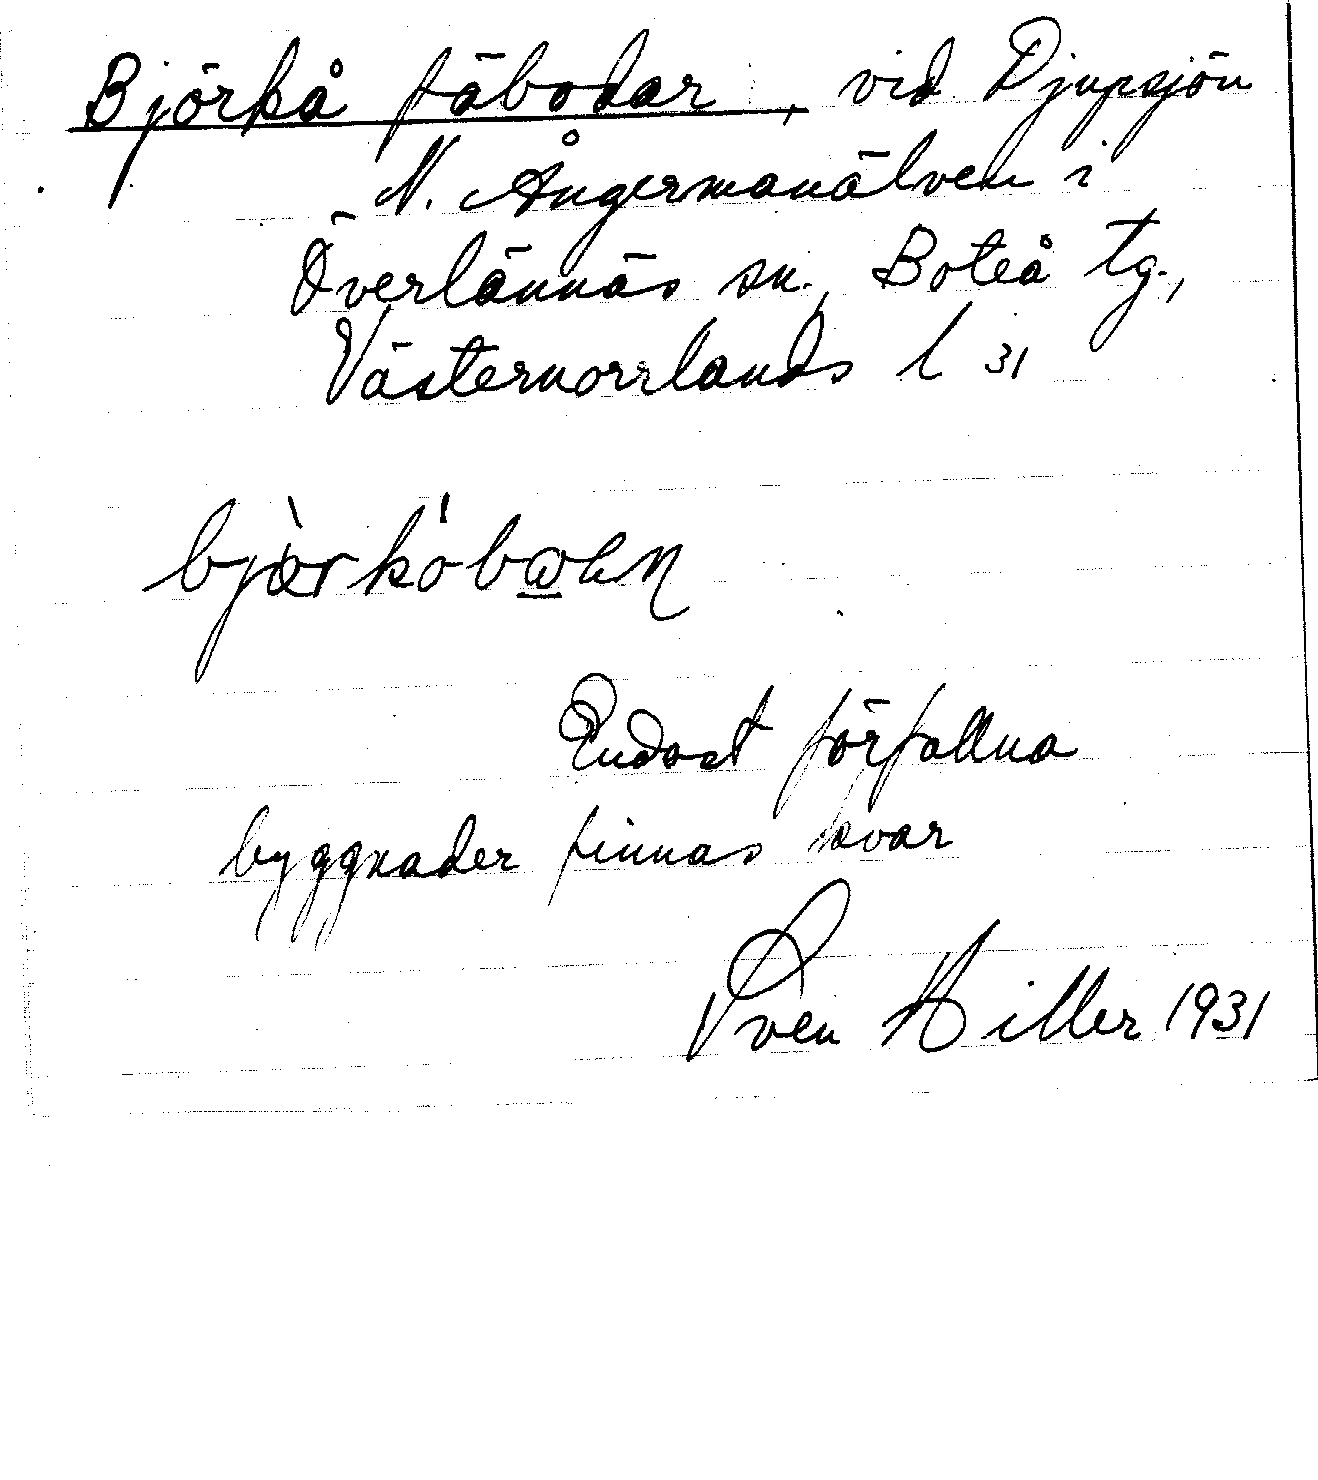 Björkå fäbodar, vid Djupsjön
N. Ångermanälven i
Överlännäs sn., Boteå tg.,
Västernorrlands l 31
Endast förfallna
byggnader finnas kvar
Sven Hiller 1931